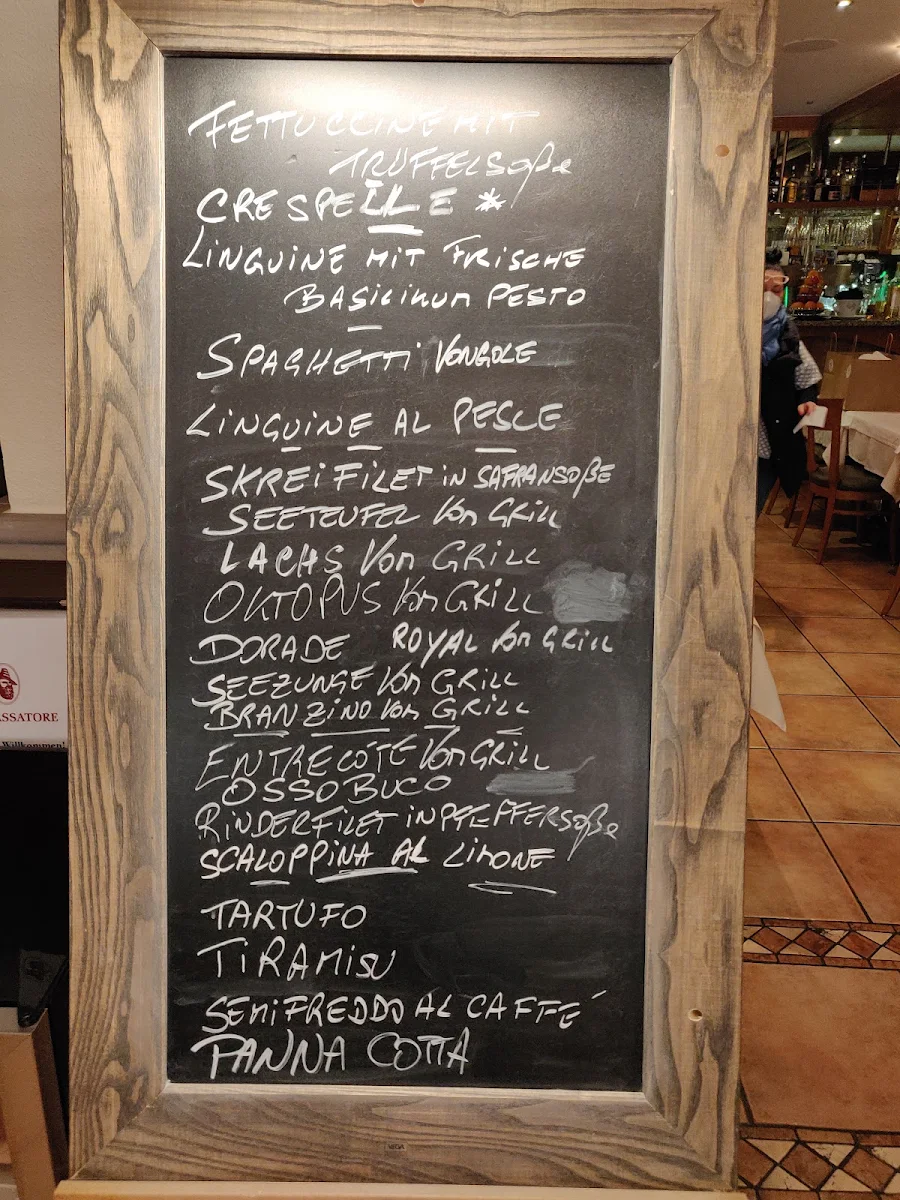 FETTUCCINE MIT
TRÜFFELSOßE
CRESPELLE *
LINGUINE MIT FRISCHE
BASILIKUM PESTO
SPAGHETTI VONGOLE
LINGUINE AL PESCE
SKREI FILET in SAFRANSOßE
SEETEUFEL Vom GRILL
LACHS Vom GRILL
OKTOPUS Vom GRILL
DORADE ROYAL Vom GRILL
SEEZUNGE Vom GRILL
BRANZINO Vom GRILL
ENTRECÔTE Vom GRILL
OSSOBUCO
RINDERFILET in PFEFFERSOßE
SCALOPPINA AL LIMONE
TARTUFO
TIRAMISU
SEMIFREDDO AL CAFFÉ
PANNA COTTA
ASSATORE
Willkommen!